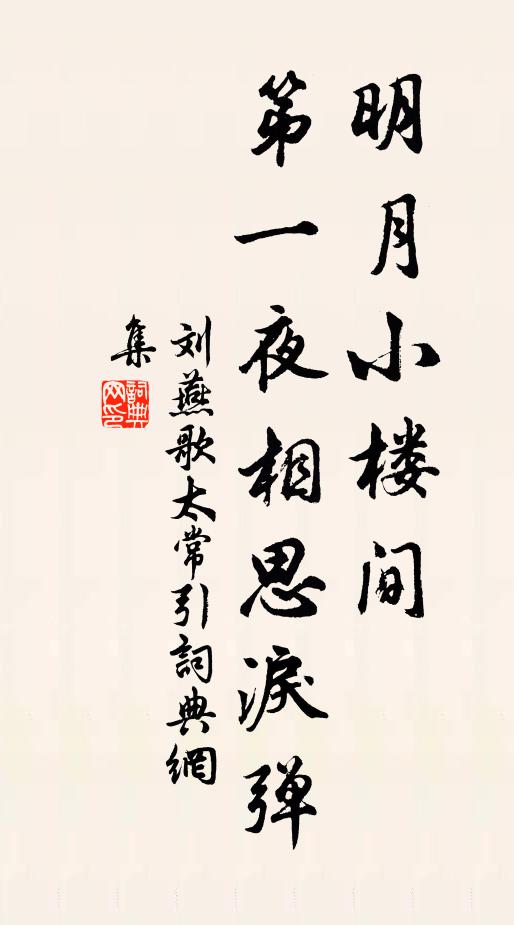 明月小楼间
第一夜相思淚弹
刘燕歌太常引詞典網
集
詞典网印